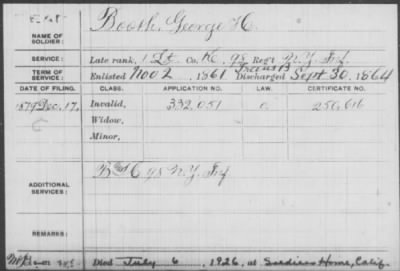 Booth, George H.
NAME OF SOLDIER:
SERVICE: Late rank, 1 Lt Co. K, 98 Reg't N.Y. Inf.
TERM OF SERVICE: Enlisted Nov 2, 1861 Discharged Sept 30, 1864
DATE OF FILING. CLASS. APPLICATION NO. LAW. CERTIFICATE NO.
1879 Dec. 17, Invalid, 332,051 250,616
C Widow,
Minor,
ADDITIONAL SERVICES: C 98 N.Y. Inf
REMARKS:
Died July 6, 1926, at Soldiers Home, Calif.